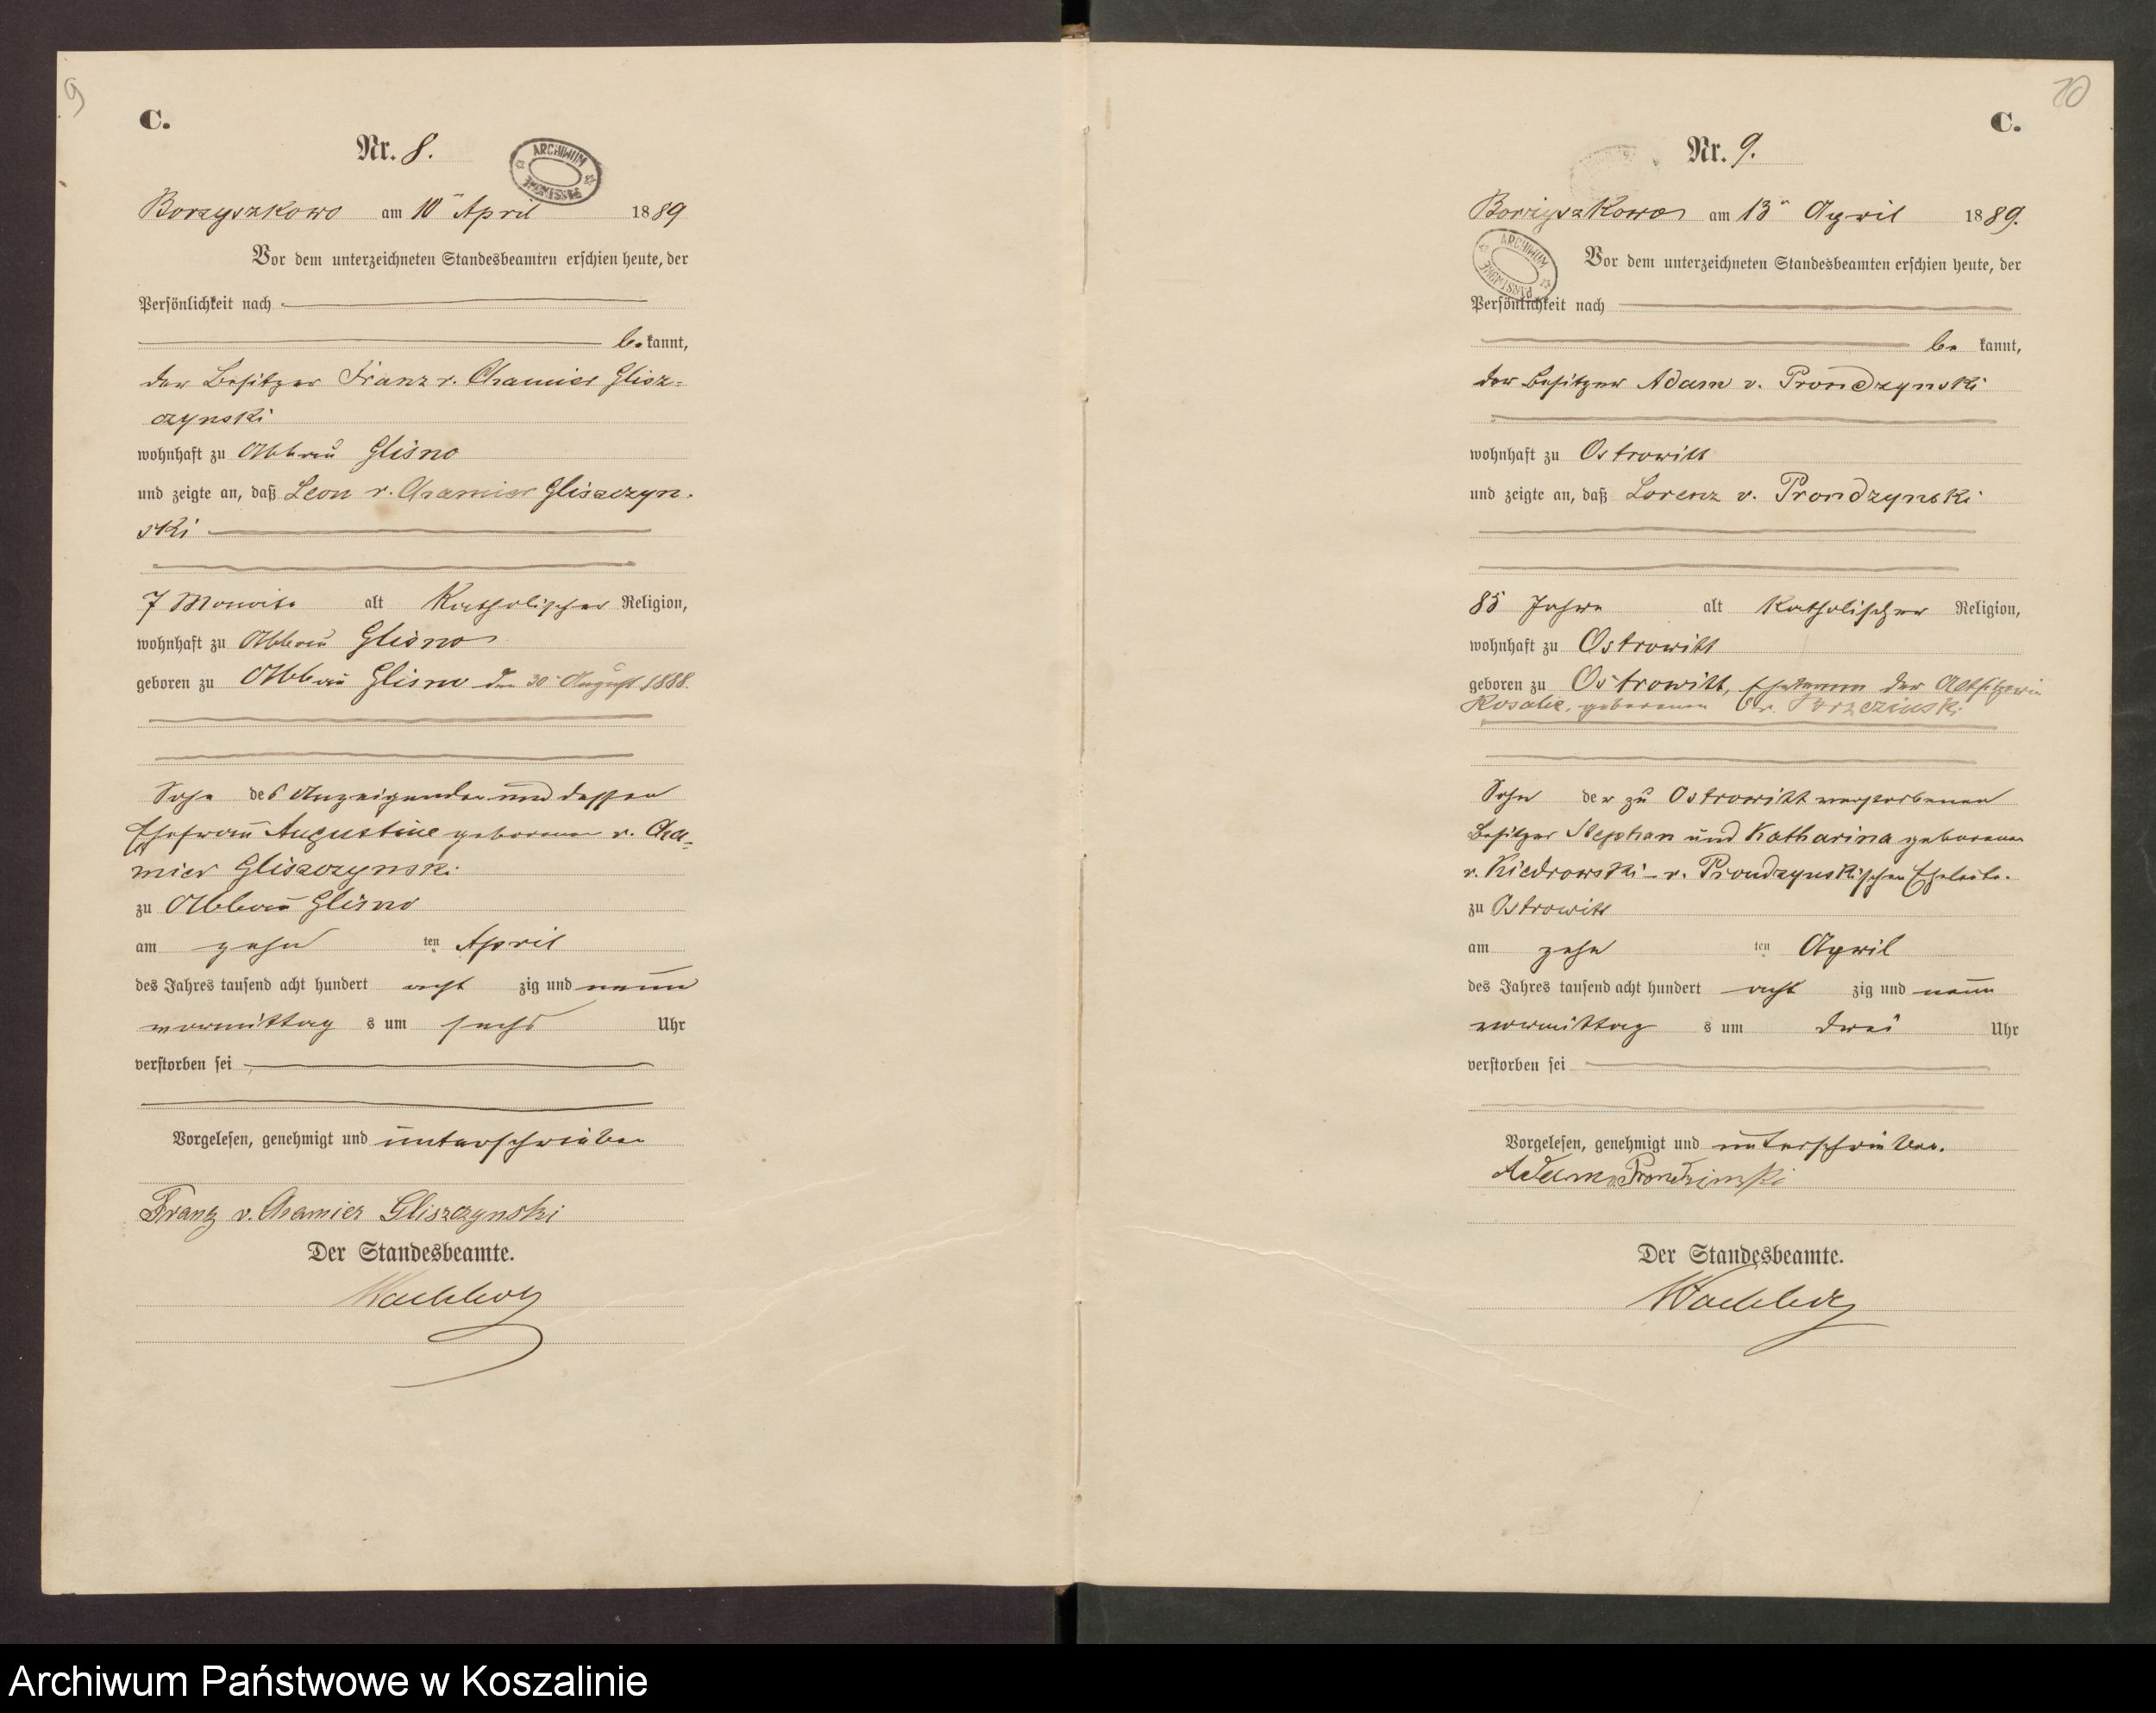 9
C.
Nr. 8.
ARCHIWUM PAŃSTWOWE
Borzyszkowo am 10ten April 1889
Vor dem unterzeichneten Standesbeamten erschien heute, der
Persönlichkeit nach
be kannt,
der Besitzer Franz v. Chamier Glisz=
czynski
wohnhaft zu Abbau Glisno
und zeigte an, daß Leon v. Chamier Gliszczyn-
ski
7 Monate alt Katholischer Religion,
wohnhaft zu Abbau Glisno
geboren zu Abbau Glisno den 30ten August 1888.
Sohn des Anzeigenden und dessen
Ehefrau Augustine geborenen v. Cha-
mier Gliszczynski
zu Abbau Glisno
am zehn ten April
des Jahres tausend acht hundert acht zig und neun
vormittag s um sechs Uhr
verstorben sei
Vorgelesen, genehmigt und unterschrieben
Franz v. Chamier Gliszczynski
Der Standesbeamte.
10
C.
Nr. 9.
Borzyszkowo am 13ten April 1889.
ARCHIWUM PAŃSTWOWE
Vor dem unterzeichneten Standesbeamten erschien heute, der
Persönlichkeit nach
be kannt,
der Besitzer Adam v. Prondzynski
wohnhaft zu Ostrowitt
und zeigte an, daß Lorenz v. Prondzynski
85 Jahre alt Katholischer Religion,
wohnhaft zu Ostrowitt
geboren zu Ostrowitt, Ehemann der Altsitzerin
Rosalie, geborenen v.
Sohn der zu Ostrowitt verstorbenen
Besitzer Stephan und Katharina geborenen
v. Kiedrowski - v. Prondzynskischen Eheleute.
zu Ostrowitt
am zehn ten April
des Jahres tausend acht hundert acht zig und neun
vormittag s um drei Uhr
verstorben sei
Vorgelesen, genehmigt und unterschrieben.
Adam v Prondzinski
Der Standesbeamte.
Archiwum Państwowe w Koszalinie